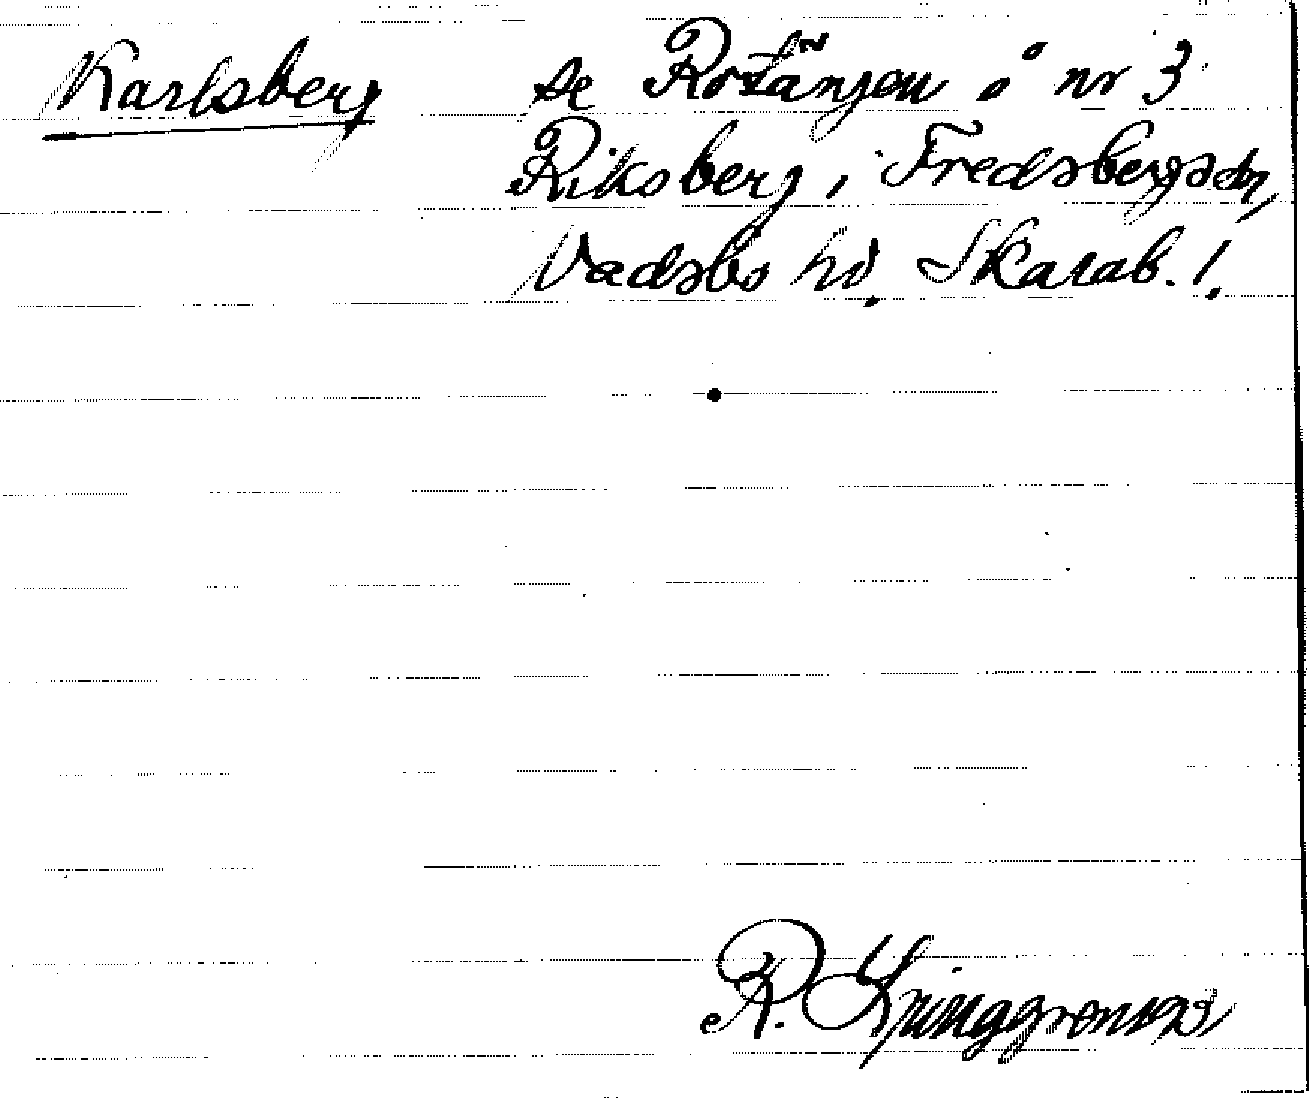 Karlsberg se Rotängen å nr 3
Riksberg, Fredsbergs sn,
Vadsbo hd. Skarab. l.
R. Ljunggren